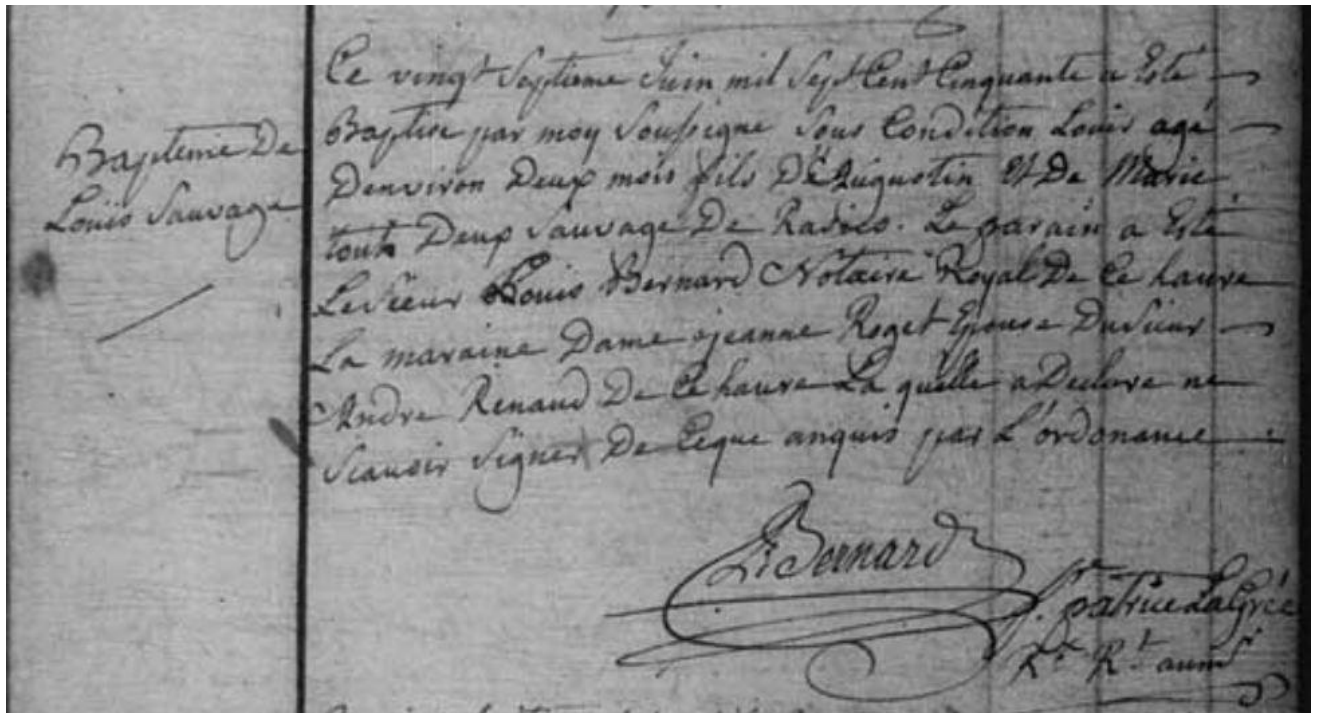 Baptême De
Louis Sauvage
Ce vingt Septieme Juin mil Sept Cent Cinquante a Esté
Baptise par moy Soussigné Sous Condition Louis agé
Denviron Deux mois fils D'Augustin Et De Marie
tout Deux Sauvage De. Le parain a Esté
Le Sieur Louis Bernard Notaire Royal De Ce havre
La maraine Dame jeanne Roget Epouse Du Sieur
Andre Renaud De Ce havre La quelle a Declare ne
Scavoir Signer De Ceque anquis par L'ordonance
L. Bernard
f. patrice LaGrée
R. aum